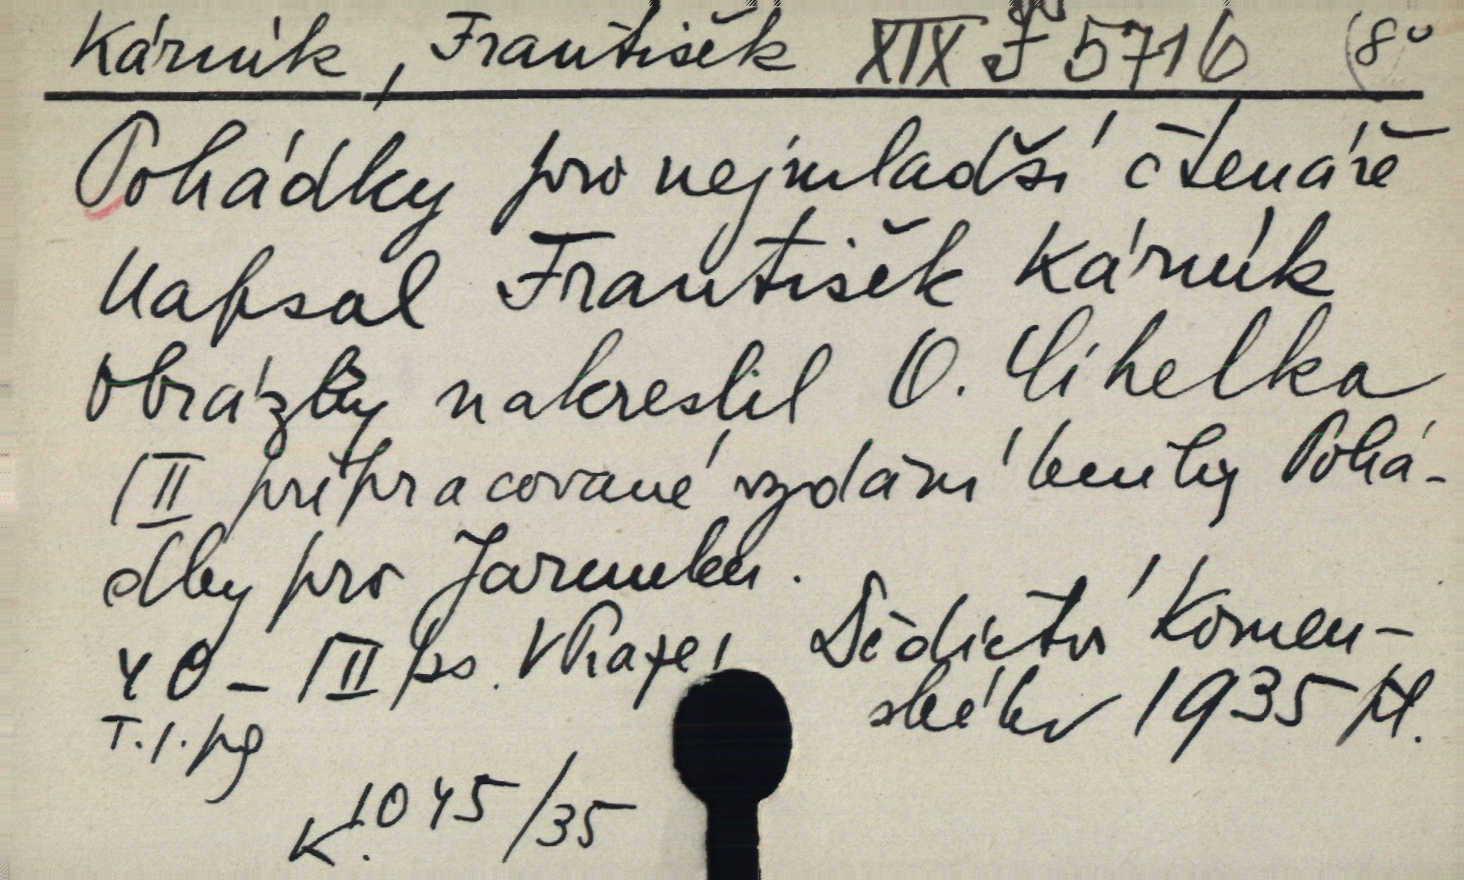 Kárník, František XIX F 5716 (8°
Pohádky pro nejmladší čtenáře
Napsal František Kárník
Obrázky nakreslil O. Cihelka
III přepracované vydání knihy Pohá-
dky pro Jarmilku.
40 - III ps. V Praze, Dědictví Komen-
ského 1935 Pl.
T. I. pg
K. 1045/35